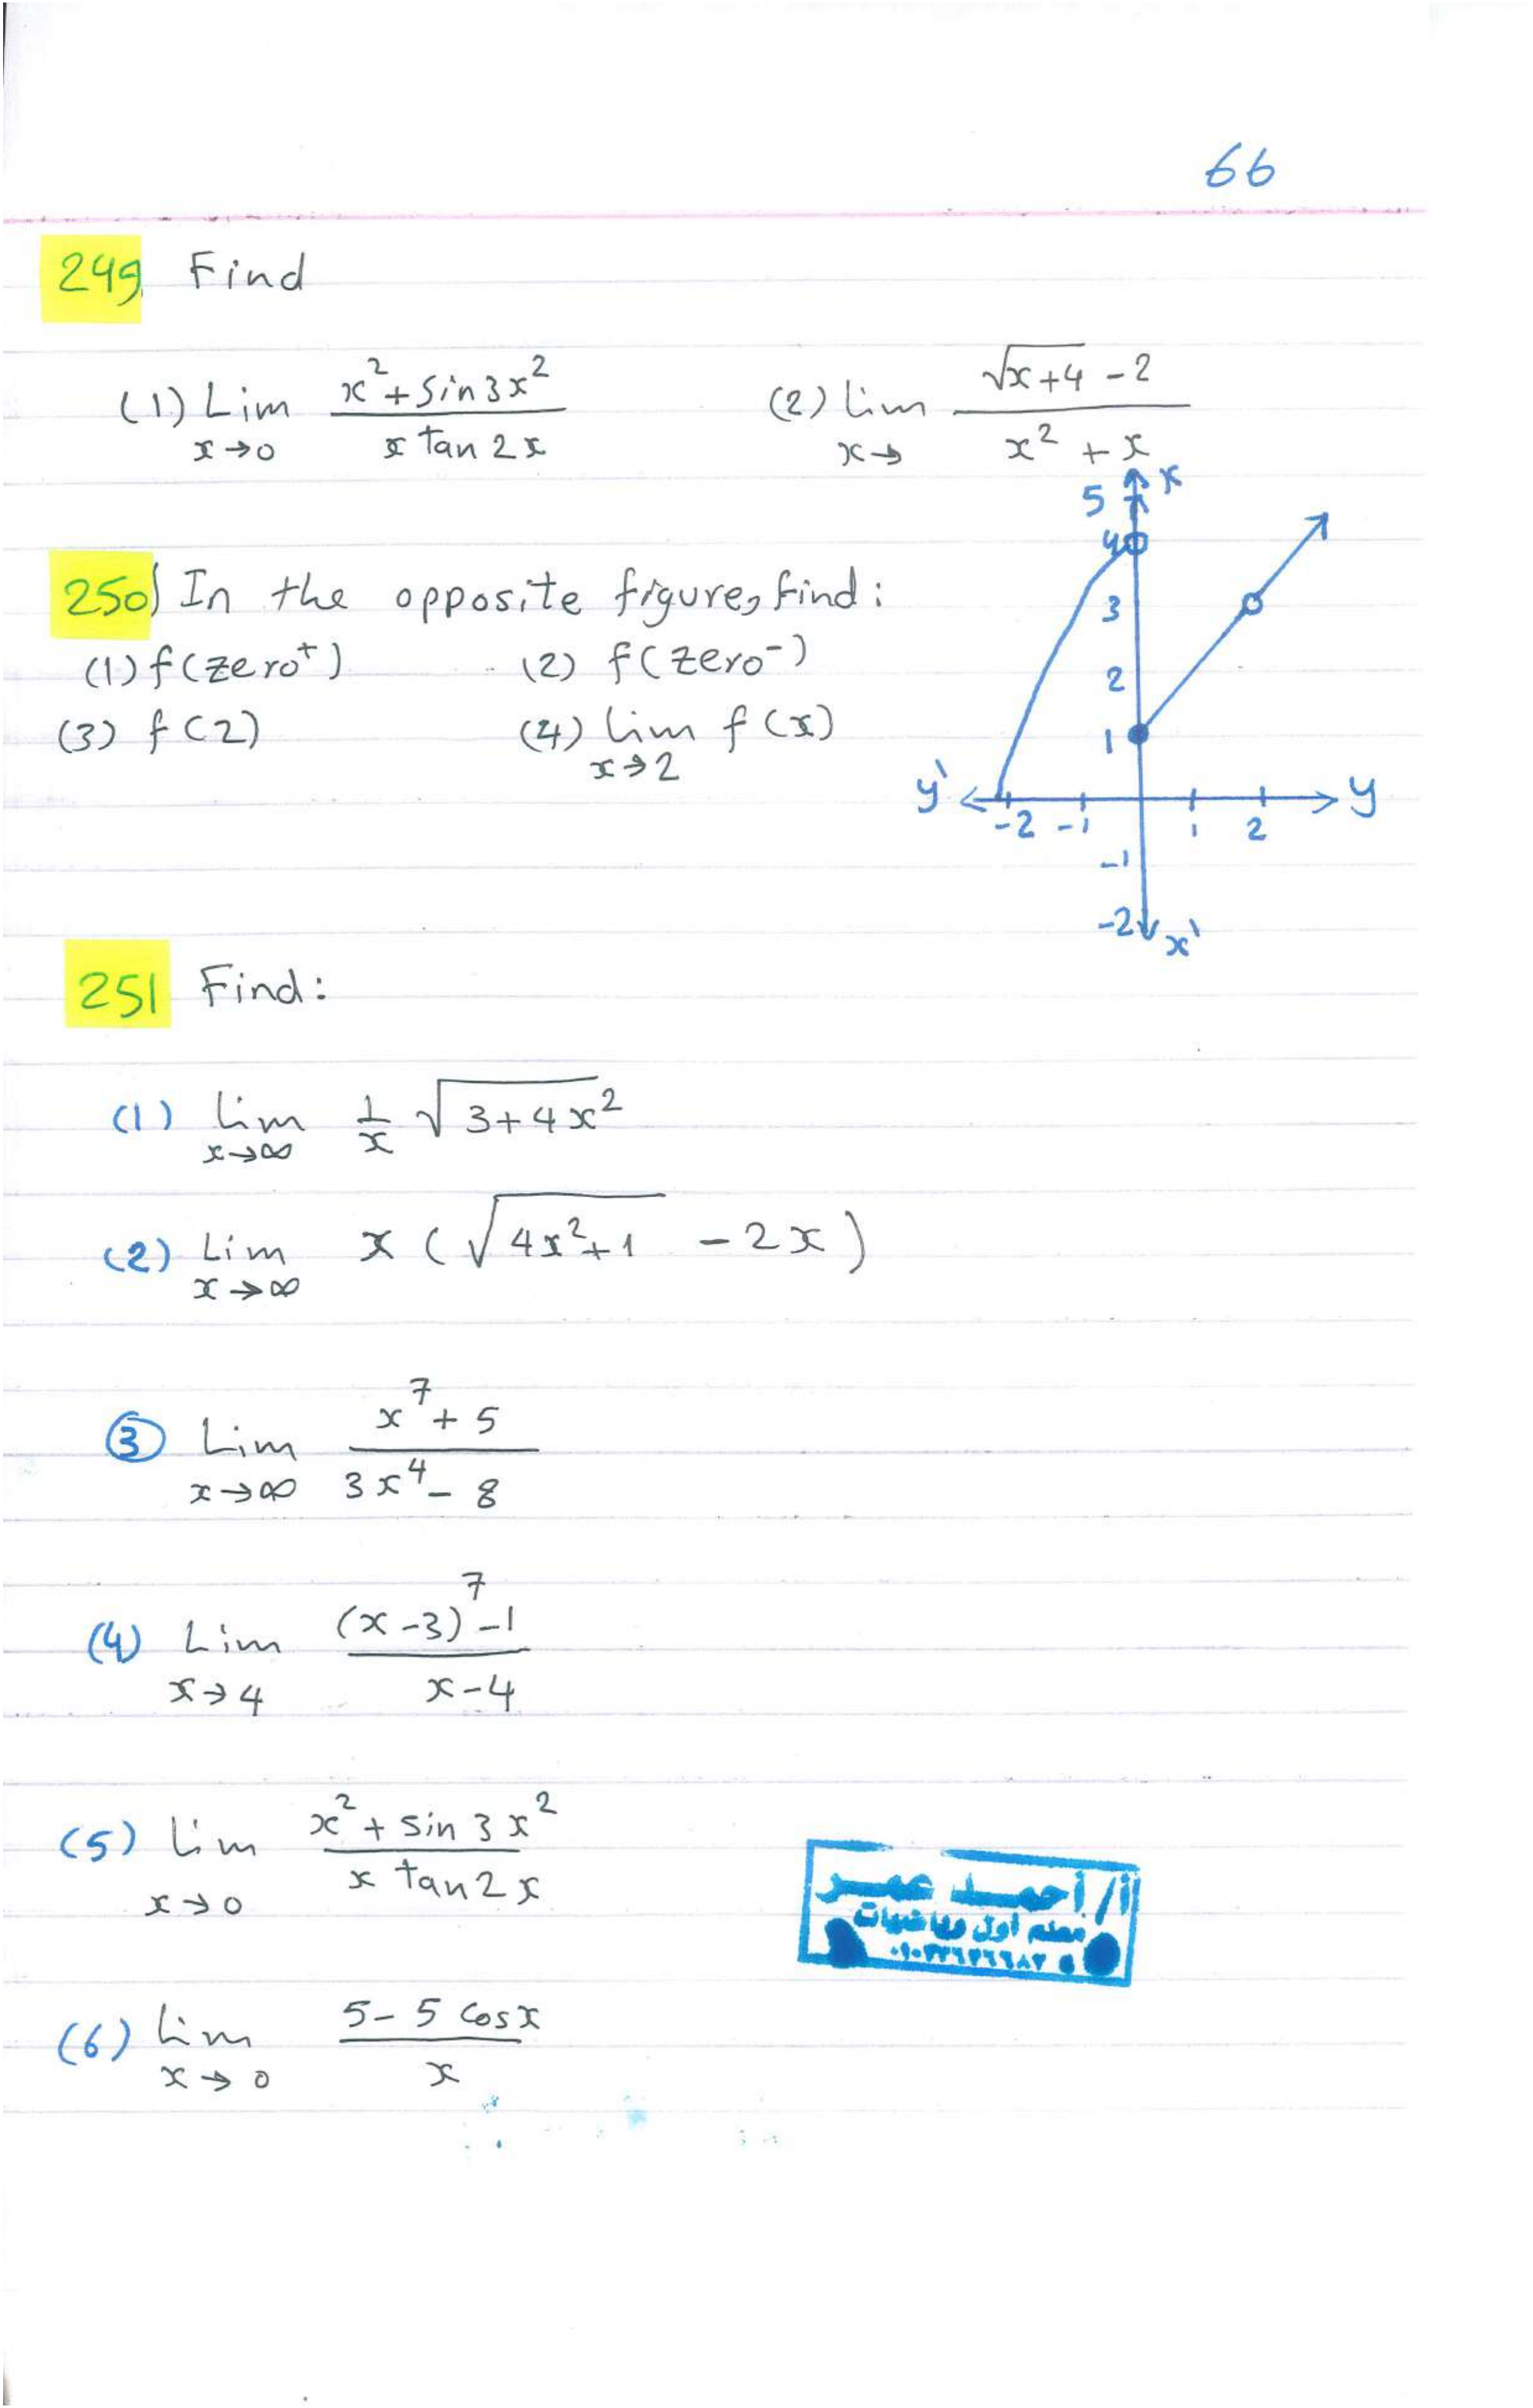 66
249 Find
(1) Lim x→0 (x² + sin 3x²) / (x tan 2x)    (2) lim x→ (√(x+4) - 2) / (x² + x)
250) In the opposite figure, find:
(1) f(zero⁺)    (2) f(zero⁻)
(3) f(2)    (4) lim x→2 f(x)
x
5
4
3
2
1
y' -2 -1 1 2 y
-1
-2 x'
251 Find:
(1) lim x→∞ 1/x √(3+4x²)
(2) Lim x→∞ x (√(4x²+1) - 2x)
(3) Lim x→∞ (x⁷ + 5) / (3x⁴ - 8)
(4) Lim x→4 ((x-3)⁷ - 1) / (x-4)
(5) lim x→0 (x² + sin 3x²) / (x tan 2x)
أ/أحمد عمر
معلم أول رياضيات
(6) lim x→0 (5 - 5 cos x) / x